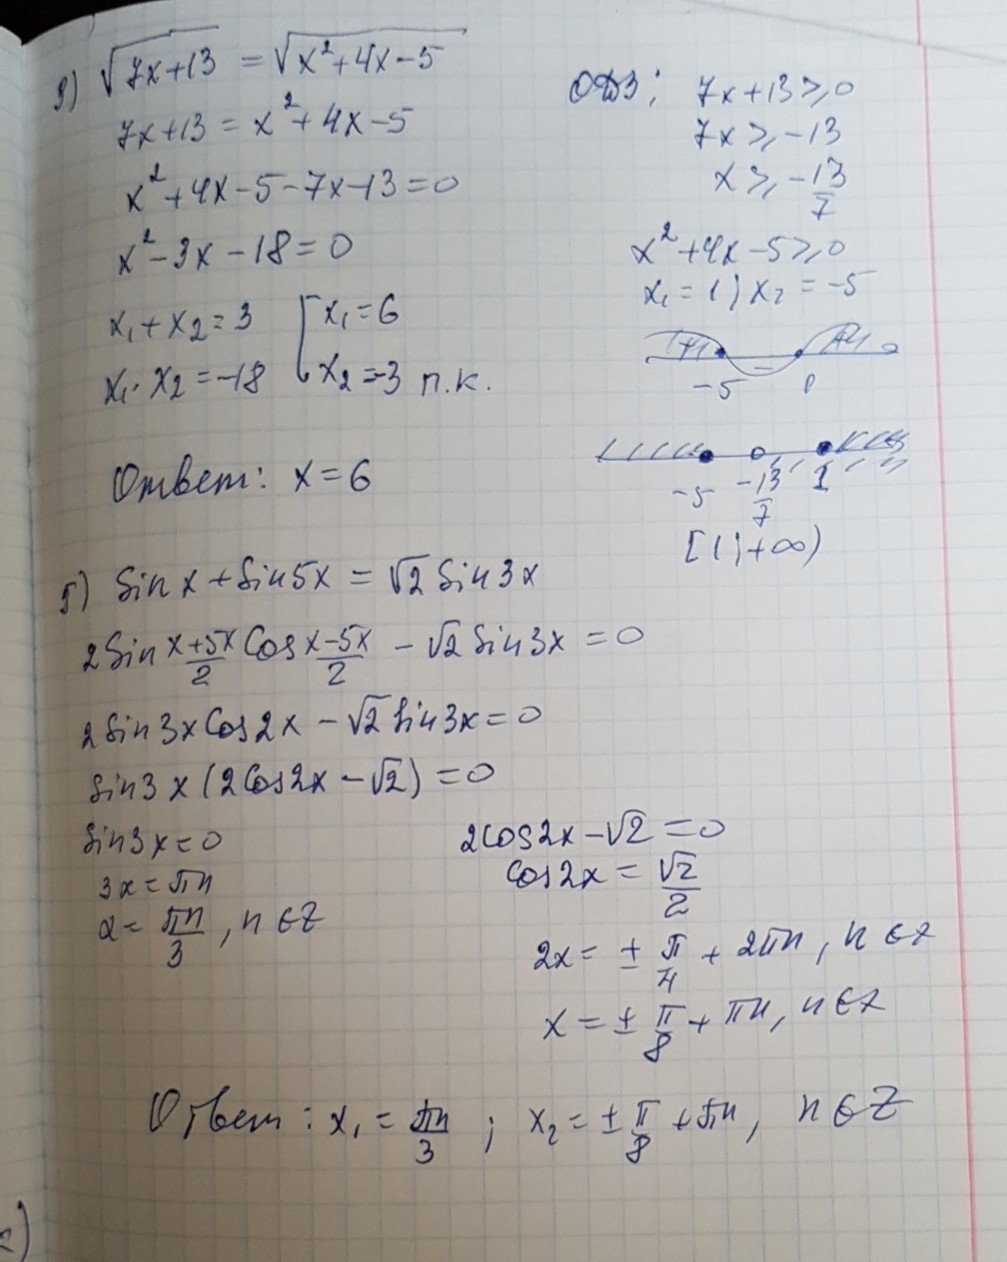 9) √7x+13 = √x²+4x-5
7x+13 = x²+4x-5
x²+4x-5-7x-13=0
x²-3x-18=0
x₁+x₂=3 [x₁=6
x₁·x₂=-18 x₂=-3 п.к.
Ответ: x=6
ОДЗ: 7x+13⩾0
7x⩾-13
x⩾-13/7
x²+4x-5⩾0
x₁=1; x₂=-5
+ - +
-5 1
-5 -13/7 1
[1;+∞)
5) Sin x + Sin 5x = √2 Sin 3x
2 Sin x+5x/2 Cos x-5x/2 - √2 Sin 3x = 0
2 Sin 3x Cos 2x - √2 Sin 3x = 0
Sin 3x (2 Cos 2x - √2) = 0
Sin 3x = 0
3x = πn
x = πn/3, n ∈ Z
2 Cos 2x - √2 = 0
Cos 2x = √2/2
2x = ± π/4 + 2πn, n ∈ Z
x = ± π/8 + πn, n ∈ Z
Ответ: x₁ = πn/3; x₂ = ± π/8 + πn, n ∈ Z